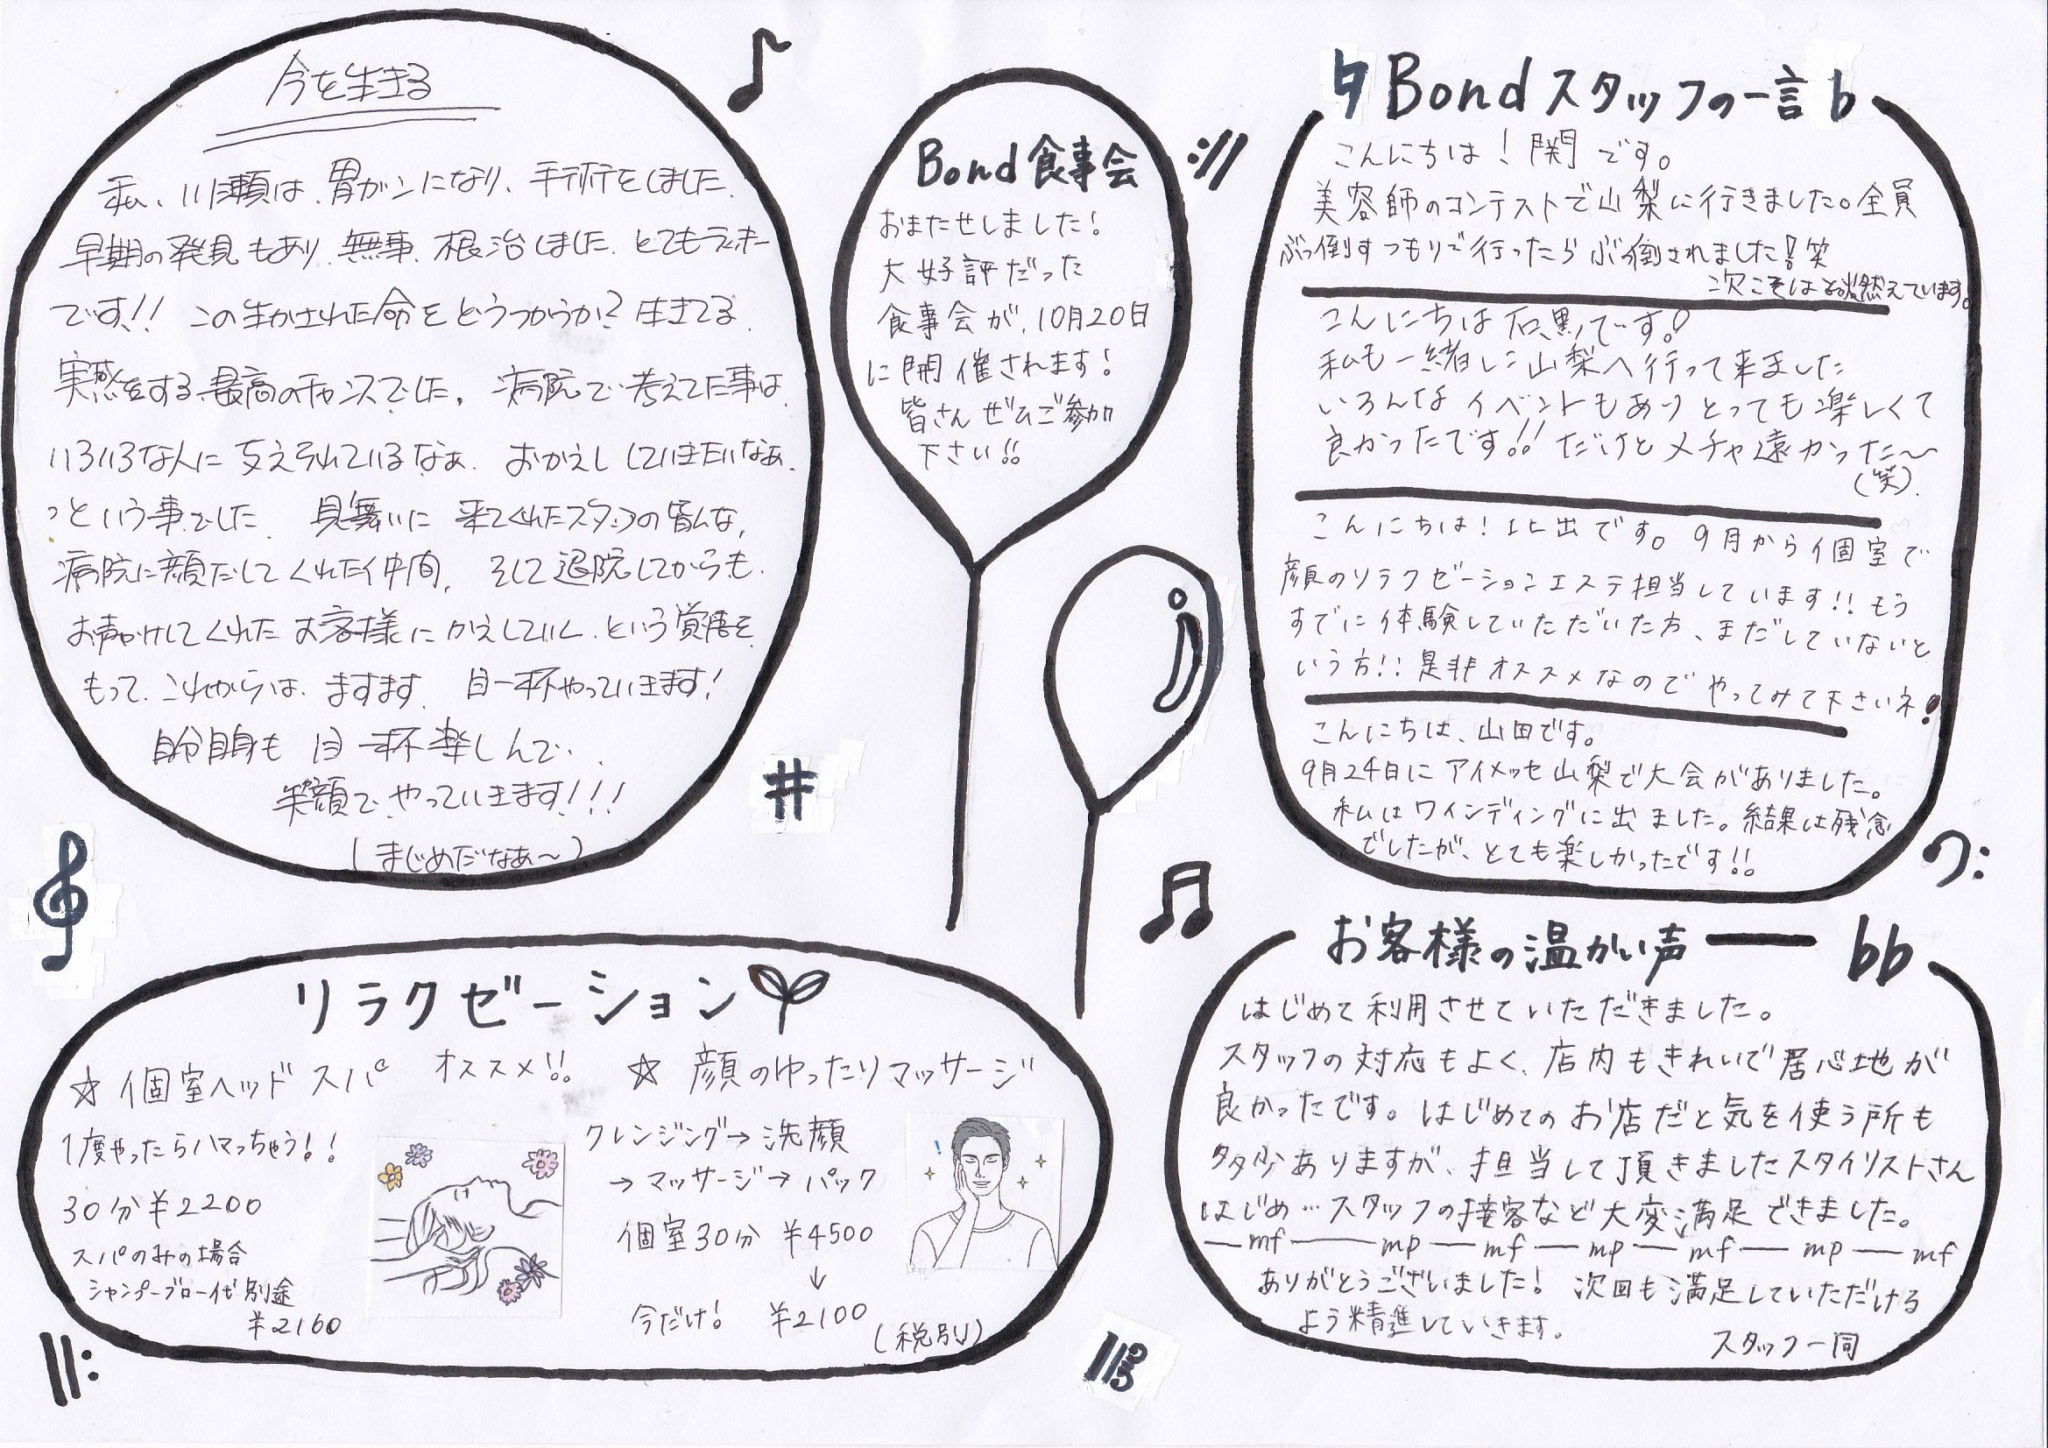 今を生きる
私、川瀬は、胃がんになり、手術をしました、
早期の発見もあり、無事、根治しました、とてもラッキー
です!! この生かされた命をどうつかうか? 生きてる、
実感をする、最高のチャンスでした。病院で考えてた事は、
いろいろな人に支えられているなぁ、おかえししていきたいなぁ、
っという事でした、見舞いに来てくれたスタッフの皆んな、
病院に顔だしてくれた仲間、そして退院してからも、
お声かけしてくれたお客様にかえしていく、という覚悟を、
もって、これからは、ますます、目一杯やっていきます!
自分自身も目一杯楽しんで、
笑顔で、やっていきます!!!
(まじめだなあ〜)
Bond食事会
おまたせしました!
大好評だった
食事会が、10月20日
に開催されます!
皆さんぜひご参加
下さい!!
Bondスタッフの一言
こんにちは!関です。
美容師のコンテストで山梨に行きました。全員
ぶっ倒すつもりで行ったらぶっ倒されました!笑
次こそはと燃えています。
こんにちは石黒です!
私も一緒に山梨へ行って来ました
いろんなイベントもありとっても楽しくて
良かったです!!だけどメチャ遠かった〜
(笑).
こんにちは!比出です。9月から個室で
顔のリラクゼーションエステ担当しています!!もう
すでに体験していただいた方、まだしていないと
いう方!!是非オススメなのでやってみて下さいネ!
こんにちは、山田です。
9月24日にアイメッセ山梨で大会がありました。
私はワインディングに出ました。結果は残念
でしたが、とても楽しかったです!!
リラクゼーション
☆個室ヘッドスパ オススメ!!
1度やったらハマっちゃう!!
30分¥2200
スパのみの場合
シャンプーブロー代別途
¥2160
☆顔のゆったりマッサージ
クレンジング→洗顔
→マッサージ→パック
個室30分 ¥4500
↓
今だけ! ¥2100
(税別)
お客様の温かい声
はじめて利用させていただきました。
スタッフの対応もよく、店内もきれいで居心地が
良かったです。はじめてのお店だと気を使う所も
多少ありますが、担当して頂きましたスタイリストさん
はじめ…スタッフの接客など大変満足できました。
mf mp mf mp mf mp mf
ありがとうございました!次回も満足していただける
よう精進していきます。
スタッフ一同